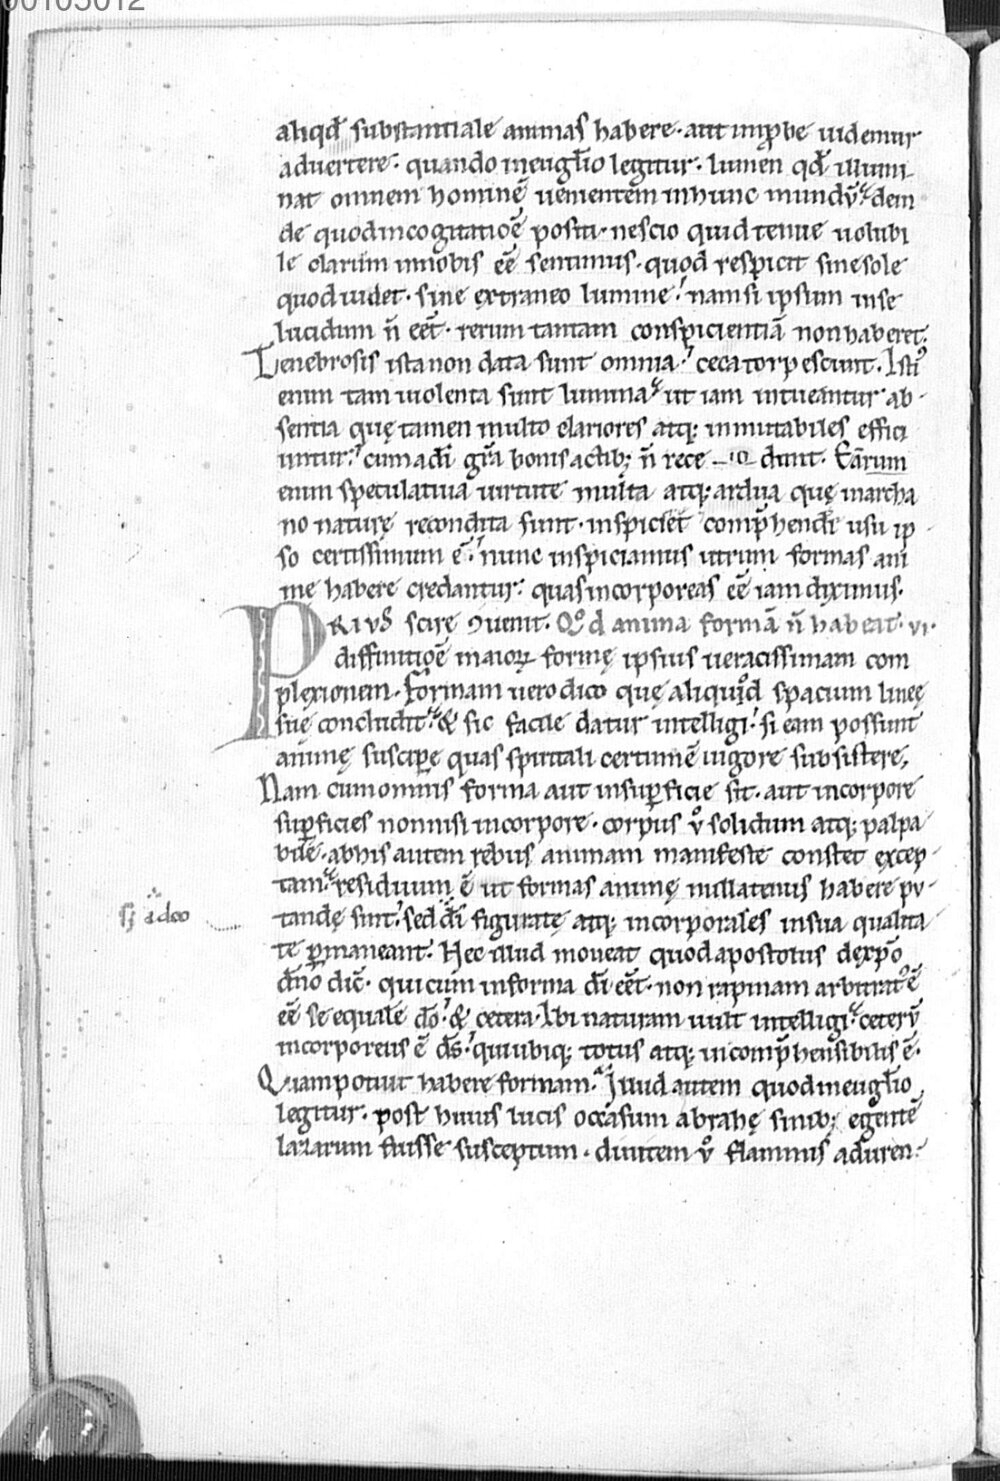 00105012
aliqd̄ substantiale animas habere· aut improbe uidemur
aduertere· quando in euglīo legitur· lumen qd̄ illumi
nat omnem hominē uenientem in hunc mundū· dein
de quod in cogitatiōe positi· nescio quid tenue uolubi
le clarum in nobis eē sentimus· quod respicit sine sole
quod uidet· sine extraneo lumine· nam si ipsum in se
lucidum n̄ eēt· rerum tantam conspicientiā non haberet·
Tenebrosis ista non data sunt omnia· ceca torpescunt· Isti᷒
enim tam uiolenta sunt lumina· ut iam intueantur ab
sentia quę tamen multo clariores atq; inmutabiles effici
untur· cum adī gr̄a bonis actib; n̄ rece dunt· Earum
enim speculatiua uirtute multa atq; ardua quę in archa
no naturę recondita sunt· inspiciēt comp̄hendī usu ip
so certissimum ē· nunc inspiciamus utrum formas ani
mę habere credantur· quas incorporeas eē iam diximus·
PRIVS scire ꝯuenit· Qd anima formā n̄ habeat· vi·
diffinitiōē maioꝝ formę ipsius ueracissimam com
plexionem· formam uero dico quę aliquod spacium lineę
suę concludit· & sic facile datur intelligi· si eam possunt
animę suscipe quas spiritali certum ē uigore subsistere,
Nam cum omnis forma aut in suꝑficie sit· aut in corpore
suꝑficies non nisi in corpore· corpus v̊ solidum atq; palpa
bile· ab his autem rebus animam manifeste constet excep
tam· residuum ē ut formas animę nullatenus habere pu
sꝫ adeo
tandę sint· sed dī figuratę atq; incorporales in sua qualita
te ꝑmaneant· Nec illud moueat quod apostolus de xp̄o
dn̄o dic̄· qui cum in forma dī eēt· non rapinam arbitrat᷒ ē
eē se equalē dō· & cetera· Ibi naturam uult intelligi· ceterū
incorporeus ē ds̄· qui ubiq; totus atq; incomp̄hensibilis ē·
Quam potuit habere formam· Illud autem quod in euglīo
legitur· post huius lucis occasum abrahę sinib; egentē
lazarum fuisse susceptum· diuitem v̊ flammis aduren·